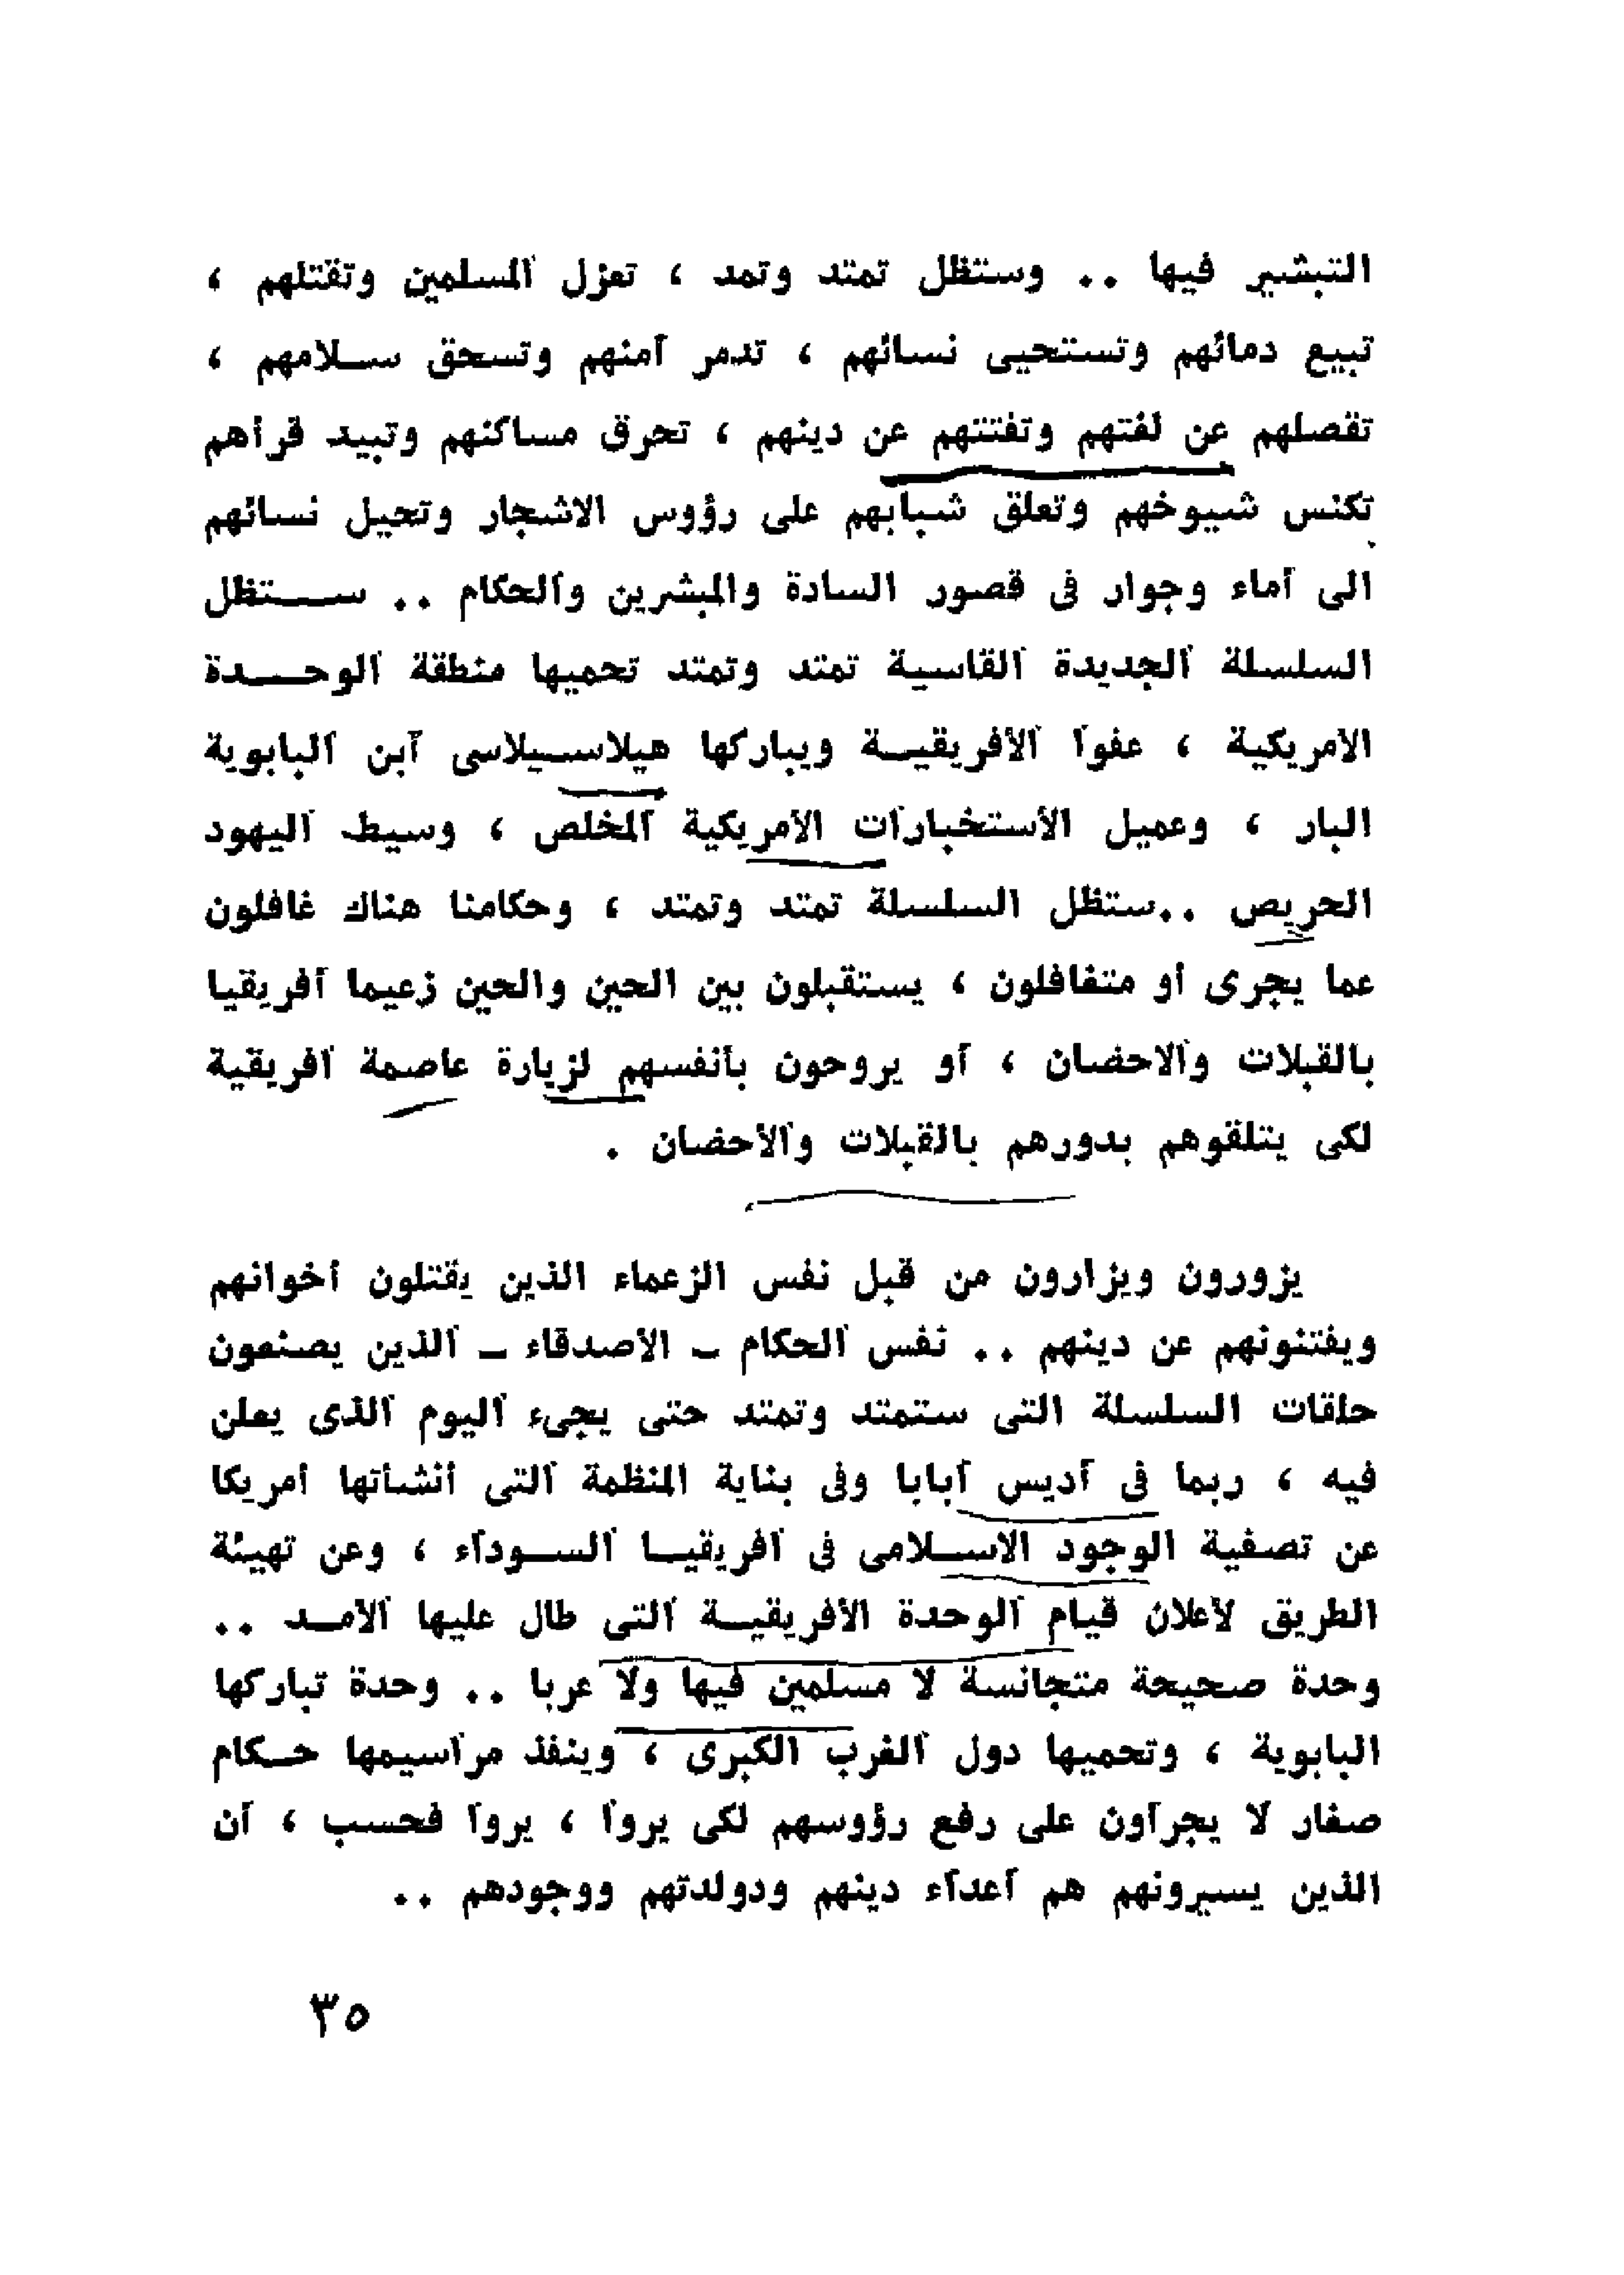 التبشير فيها .. وستظل تمتد وتمد ، تعزل المسلمين وتقتلهم ،
تبيع دمائهم وتستحيى نسائهم ، تدمر أمنهم وتسحق سلامهم ،
تفصلهم عن لغتهم وتفتنهم عن دينهم ، تحرق مساكنهم وتبيد قرأهم
تكنس شيوخهم وتعلق شبابهم على رؤوس الاشجار وتحيل نسائهم
الى أماء وجوار فى قصور السادة والمبشرين والحكام .. ستظل
السلسلة الجديدة القاسية تمتد وتمتد تحميها منطقة الوحدة
الامريكية ، عفوا الأفريقية ويباركها هيلاسيلاسى ابن البابوية
البار ، وعميل الأستخبارات الأمريكية المخلص ، وسيط اليهود
الحريص ..ستظل السلسلة تمتد وتمتد ، وحكامنا هناك غافلون
عما يجرى أو متغافلون ، يستقبلون بين الحين والحين زعيما أفريقيا
بالقبلات والاحضان ، أو يروحون بأنفسهم لزيارة عاصمة أفريقية
لكى يتلقوهم بدورهم بالقبلات والأحضان .
يزورون ويزارون من قبل نفس الزعماء الذين يقتلون أخوانهم
ويفتنونهم عن دينهم .. نفس الحكام - الأصدقاء - الذين يصنعون
حلقات السلسلة التى ستمتد وتمتد حتى يجىء اليوم الذى يعلن
فيه ، ربما فى أديس أبابا وفى بناية المنظمة التى أنشأتها أمريكا
عن تصفية الوجود الاسلامى فى أفريقيا السوداء ، وعن تهيئة
الطريق لأعلان قيام الوحدة الأفريقية التى طال عليها الأمد ..
وحدة صحيحة متجانسة لا مسلمين فيها ولا عربا .. وحدة تباركها
البابوية ، وتحميها دول الغرب الكبرى ، وينفذ مراسيمها حكام
صغار لا يجرأون على رفع رؤوسهم لكى يروا ، يروا فحسب ، أن
الذين يسيرونهم هم أعداء دينهم ودولدتهم ووجودهم ..
٣٥